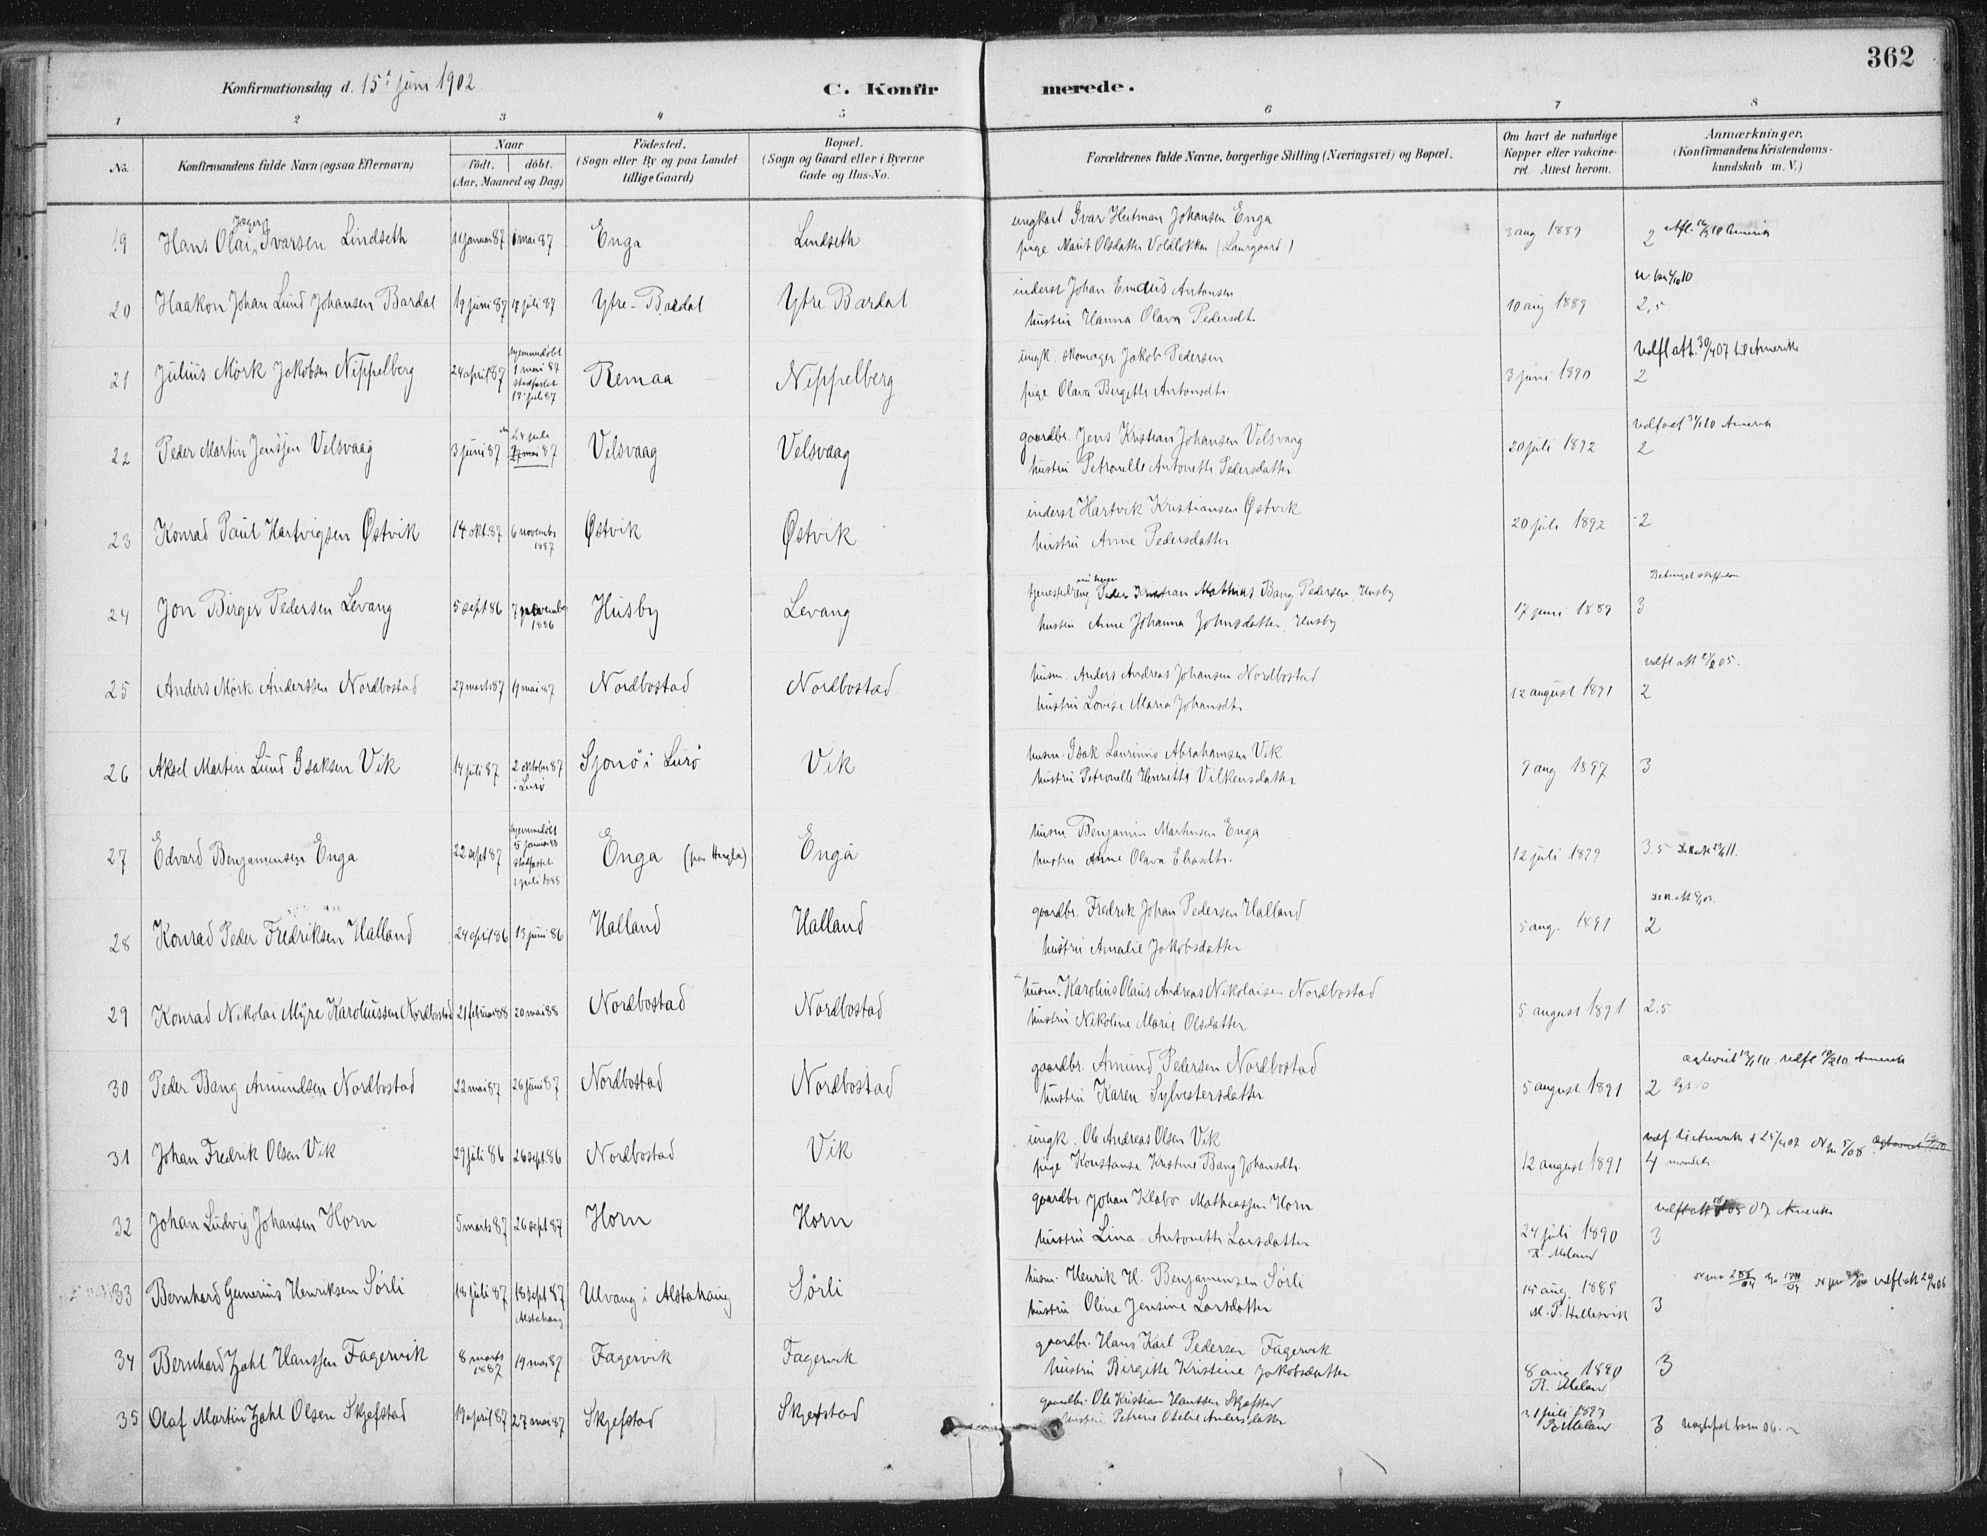 362
Konfirmationsdag d. 15de juni 1902
C. Konfirmerede.
1 2 3 4 5 6 7 8
No. Konfirmandens fulde Navn (ogsaa Efternavn) Naar födt. döbt. (Aar, Maaned og Dag) Födested. (Sogn eller By og paa Landet tillige Gaard) Bopæl. (Sogn og Gaard eller i Byerne Gade og Hus-No. Forældrenes fulde Navne, borgerlige Stilling (Næringsvei) og Bopæl. Om havt de naturlige Kopper eller vakcineret. Attest herom. Anmærkninger. (Konfirmandens Kristendomskundskab m. V.)
19 Hans Olai Jæger Ivarsen Lindseth 11 januar 87 1 mai 87 Enga Lindseth ungkarl Ivar Heitman Johansen Enga 3 aug 1889 2
pige Marit Olsdatter Voldlokken (Laurgaard)
20 Haakon Johan Lund Johansen Bardal 19 juni 87 17 juli 87 Ytre-Bardal Ytre Bardal inderst Johan Emelius Antonsen 10 aug 1889 2,5
hustru Hanna Olava Pedersdt.
21 Julius Mörk Jakobsen Nippelberg 24 april 87 hjemmedöbt 1 mai 87 stadfæstet 17 juli 87 Remaa Nippelberg ungk. skomager Jakob Pedersen 3 juni 1890 vedfl att. 30/4 07 til Amerika 2
pige Olava Bergitte Antonsdt.
22 Peder Martin Jenssen Velsvaag 3 juni 87 24 juli 87 Velsvaag Velsvaag gaardbr. Jens Kristian Johansen Velsvaag 20 juli 1892 2
hustru Petronelle Antonette Pedersdatter
23 Konrad Paul Hartvigsen Østvik 14 okt. 87 6 november 1887 Østvik Østvik inderst Hartvik Kristiansen Østvik 20 juli 1892 2
hustru Anne Pedersdatter
24 Jon Birger Pedersen Levang 5 sept 86 7 november 1886 Husby Levang tjenestedreng Peder Kristian Mathias Bang Pedersen Husby 17 juni 1889 3
hustru Anne Johanna Johnsdatter, Husby
25 Anders Mörk Anderssen Nordbostad 27 marts 87 19 mai 87 Nordbostad Nordbostad husm. Anders Andreas Johansen Nordbostad 12 august 1891 2
hustru Lovise Maria Johansdt.
26 Aksel Martin Lund Isaksen Vik 14 juli 87 2 oktober 87 i Lurö Sjonö i Lurö Vik husm. Isak Laurinus Abrahamsen Vik 9 aug 1897 3
hustru Petronelle Henrette Vilkensdatter
27 Edvard Benjaminsen Enga 22 sept 87 hjemmedöbt 5 januar 88 stadfæstet 1 juli 1888 Enga (paa Hugla) Enga husm. Benjamin Martinsen Enga 12 juli 1899 3.5
hustru Anne Olava Eliasdt.
28 Konrad Peder Fredriksen Halland 24 april 86 13 juni 86 Halland Halland gaardbr. Fredrik Johan Pedersen Halland 5 aug. 1891 2
hustru Amalie Jakobsdatter
29 Konrad Nikolai Myre Karoliussen Nordbostad 21 februar 88 20 mai 88 Nordbostad Nordbostad husm. Karolius Olaus Andreas Nikolaisen Nordbostad 5 august 1891 2.5
hustru Nikoline Marie Olsdatter
30 Peder Bang Amundsen Nordbostad 22 mai 87 26 juni 87 Nordbostad Nordbostad gaardbr. Amund Pedersen Nordbostad 5 august 1891 2
hustru Karen Sylvestersdatter
31 Johan Fredrik Olsen Vik 29 juli 86 26 sept. 86 Nordbostad Vik ungk. Ole Andreas Olsen Vik 12 august 1891 4
pige Konstanse Kristine Bang Johansdt.
32 Johan Ludvig Johansen Horn 5 marts 87 26 sept 87 Horn Horn gaardbr Johan Klabo Mathiassen Horn 24 juli 1890 R. Meland 3
hustru Lina Antonette Larsdatter
33 Bernhard Gunerius Henriksen Sörli 18 juli 87 18 sept 87 Alstahaug Ulvang i Alstahaug Sörli husm. Henrik H. Benjaminsen Sörli 15 aug. 1889 M. P. Hellesvik 3
hustru Oline Jensine Larsdatter
34 Bernhard Zahl Hanssen Fagervik 8 marts 1887 19 mai 87 Fagervik Fagervik gaardbr. Hans Karl Pedersen Fagervik 8 aug 1890 R. Meland 3
hustru Birgitte Kristine Jakobsdatter
35 Olaf Martin Zahl Olsen Skjefstad 19 april 87 27 mai 87 Skjefstad Skjefstad gaardbr. Ole Kristian Hanssen Skjefstad 31 juli 1897 R. Meland 3
hustru Petrine Otelie Andersdatter